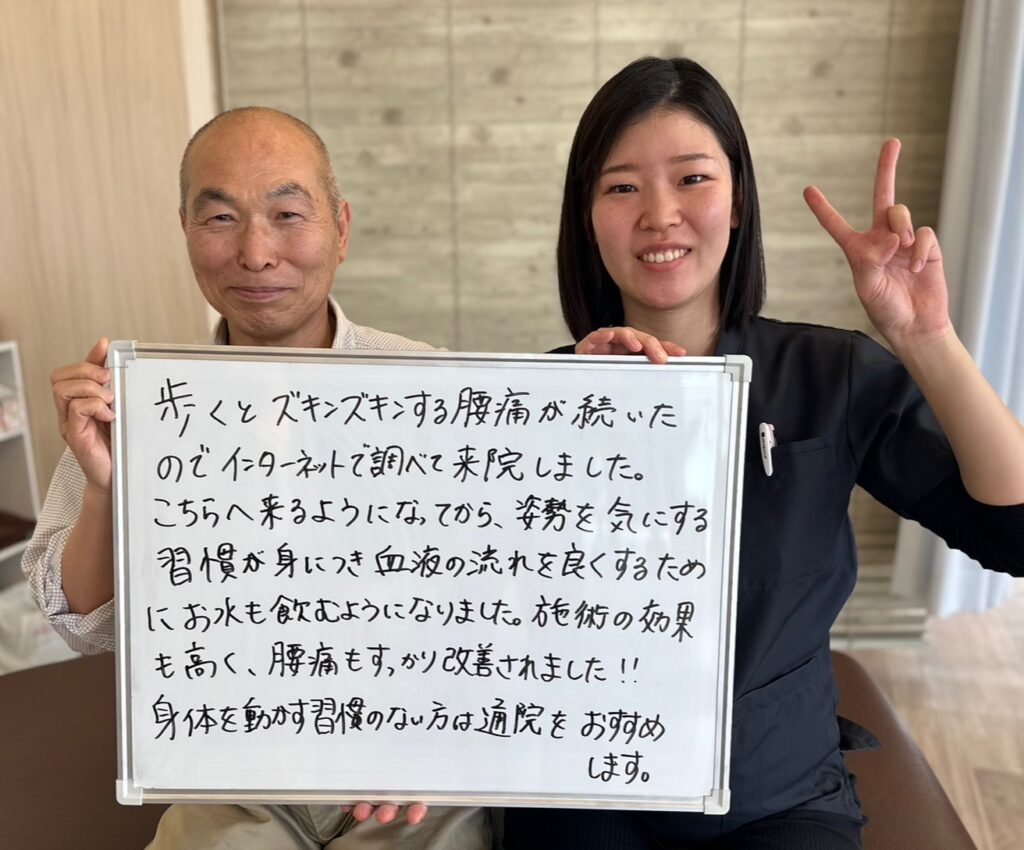 歩くとズキンズキンする腰痛が続いた
のでインターネットで調べて来院しました。
こちらへ来るようになってから、姿勢を気にする
習慣が身につき血液の流れを良くするため
にお水も飲むようになりました。施術の効果
も高く、腰痛もすっかり改善されました!!
身体を動かす習慣のない方は通院をおすすめ
します。